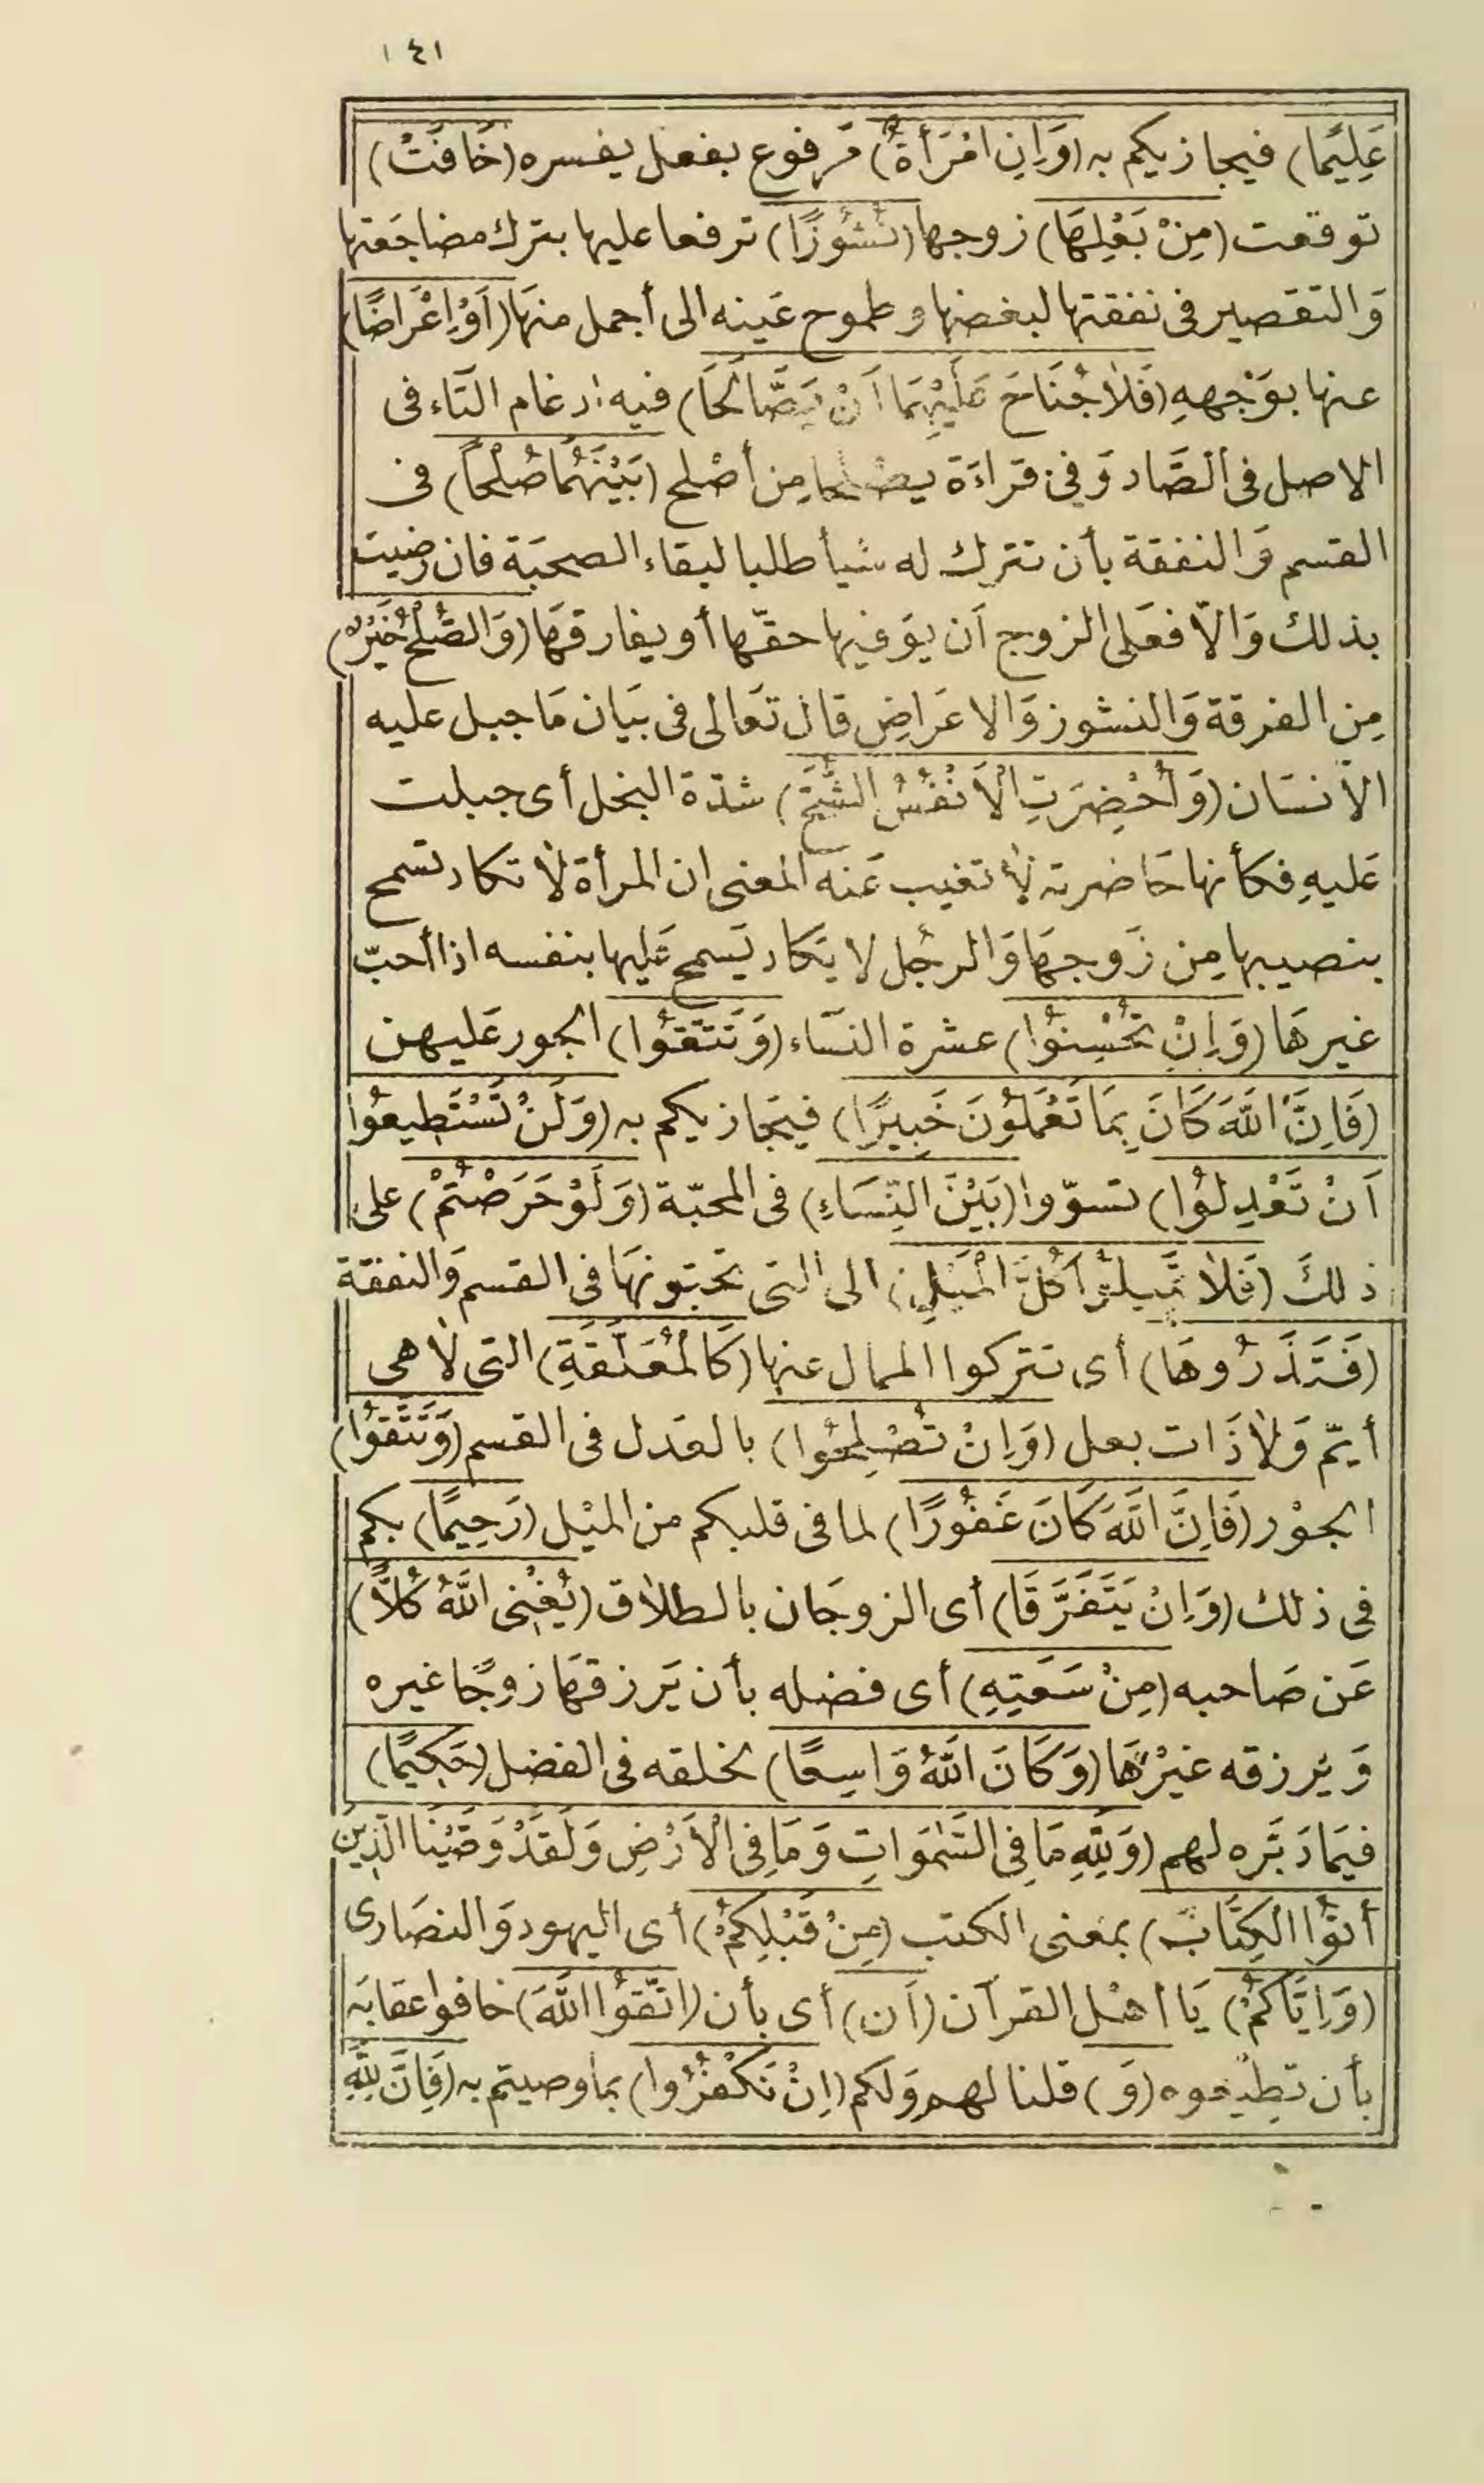 ١٤١
عَلِيمًا) فيجازيكم به (وَإِنِ امْرَأَةٌ) مَرفوع بفعل يفسره (خَافَتْ)
توقعت (مِنْ بَعْلِهَا) زوجها (نُشُوزًا) ترفعا عليها بترك مضاجَعتها
وَالتقصير فى نفقتها لبغضها وطموح عَينه الى أجمل منهَا (أَوْ إِعْرَاضًا)
عنها بوَجْههِ (فَلَا جُنَاحَ عَلَيْهِمَا أَنْ يَصَّالَحَا) فيه ادغام التَاء فى
الاصل فى الصَّاد وَفى قراءَة يصْلحا مِن أصْلح (بَيْنَهُمَا صُلْحًا) فى
القسم وَالنفقة بأن تترك له شيأ طلبا لبقاء الصحبَة فان رضيت
بذلك وَالّا فعَلى الزوج أن يوَفيها حقّها أو يفارقهَا (وَالصُّلْحُ خَيْرٌ)
مِن الفرقة وَالنشوز وَالاعَراضِ قال تعَالى فى بيَان مَا جبل عليه
الأنسَان (وَأُحْضِرَتِ الْأَنْفُسُ الشُّحَّ) شدّة البخل أى جبلت
عَليهِ فكأنها حَاضرته لا تغيب عَنه المعنى ان المرأة لا تكاد تسمح
بنصيبها مِن زَوجهَا وَالرجُل لا يكَاد يَسمح عَليها بنفسه اذا أحبّ
غيرهَا (وَإِنْ تُحْسِنُوا) عشرة النسَاء (وَتَتَّقُوا) الجور عَليهن
(فَإِنَّ اللَّهَ كَانَ بِمَا تَعْمَلُونَ خَبِيرًا) فيجَازيكم به (وَلَنْ تَسْتَطِيعُوا
أَنْ تَعْدِلُوا) تسوّوا (بَيْنَ النِّسَاءِ) فى المحبّة (وَلَوْ حَرَصْتُمْ) على
ذلكَ (فَلَا تَمِيلُوا كُلَّ الْمَيْلِ) الى التى تحبّونهَا فى القسم وَالنفقة
(فَتَذَرُوهَا) أى تتركوا الممال عنها (كَالْمُعَلَّقَةِ) التى لا هى
أيّم وَلا ذَات بعل (وَإِنْ تُصْلِحُوا) بالعَدل فى القسم (وَتَتَّقُوا)
الجوْر (فَإِنَّ اللَّهَ كَانَ غَفُورًا) لما فى قلبكم من الميْل (رَحِيمًا) بكم
فى ذلك (وَإِنْ يَتَفَرَّقَا) أى الزوجَان بالطلاق (يُغْنِى اللَّهُ كُلًّا)
عَن صَاحبه (مِنْ سَعَتِهِ) أى فضله بأن يَرزقهَا زوجًا غيره
وَيَرزقه غيْرهَا (وَكَانَ اللَّهُ وَاسِعًا) لخلقه فى الفضل (حَكِيمًا)
فيمَا دَبَّره لهم (وَلِلَّهِ مَا فِى السَّمٰوَاتِ وَمَا فِى الْأَرْضِ وَلَقَدْ وَصَّيْنَا الَّذِينَ
أُتُوا الْكِتَابَ) بمَعنى الكتب (مِنْ قَبْلِكُمْ) أى اليهود وَالنصَارى
(وَإِيَّاكُمْ) يَا أهْل القرآن (أَن) أى بأن (اتَّقُوا اللَّهَ) خافوا عقابَه
بأن تطِيعوه (وَ) قلنا لهم وَلكم (إِنْ تَكْفُرُوا) بما وصيتم به (فَإِنَّ لِلَّهِ